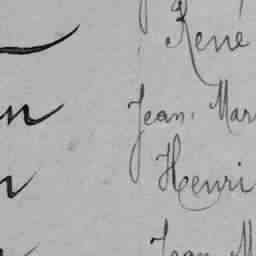 René
Jean. Mar
Henri
Jean M